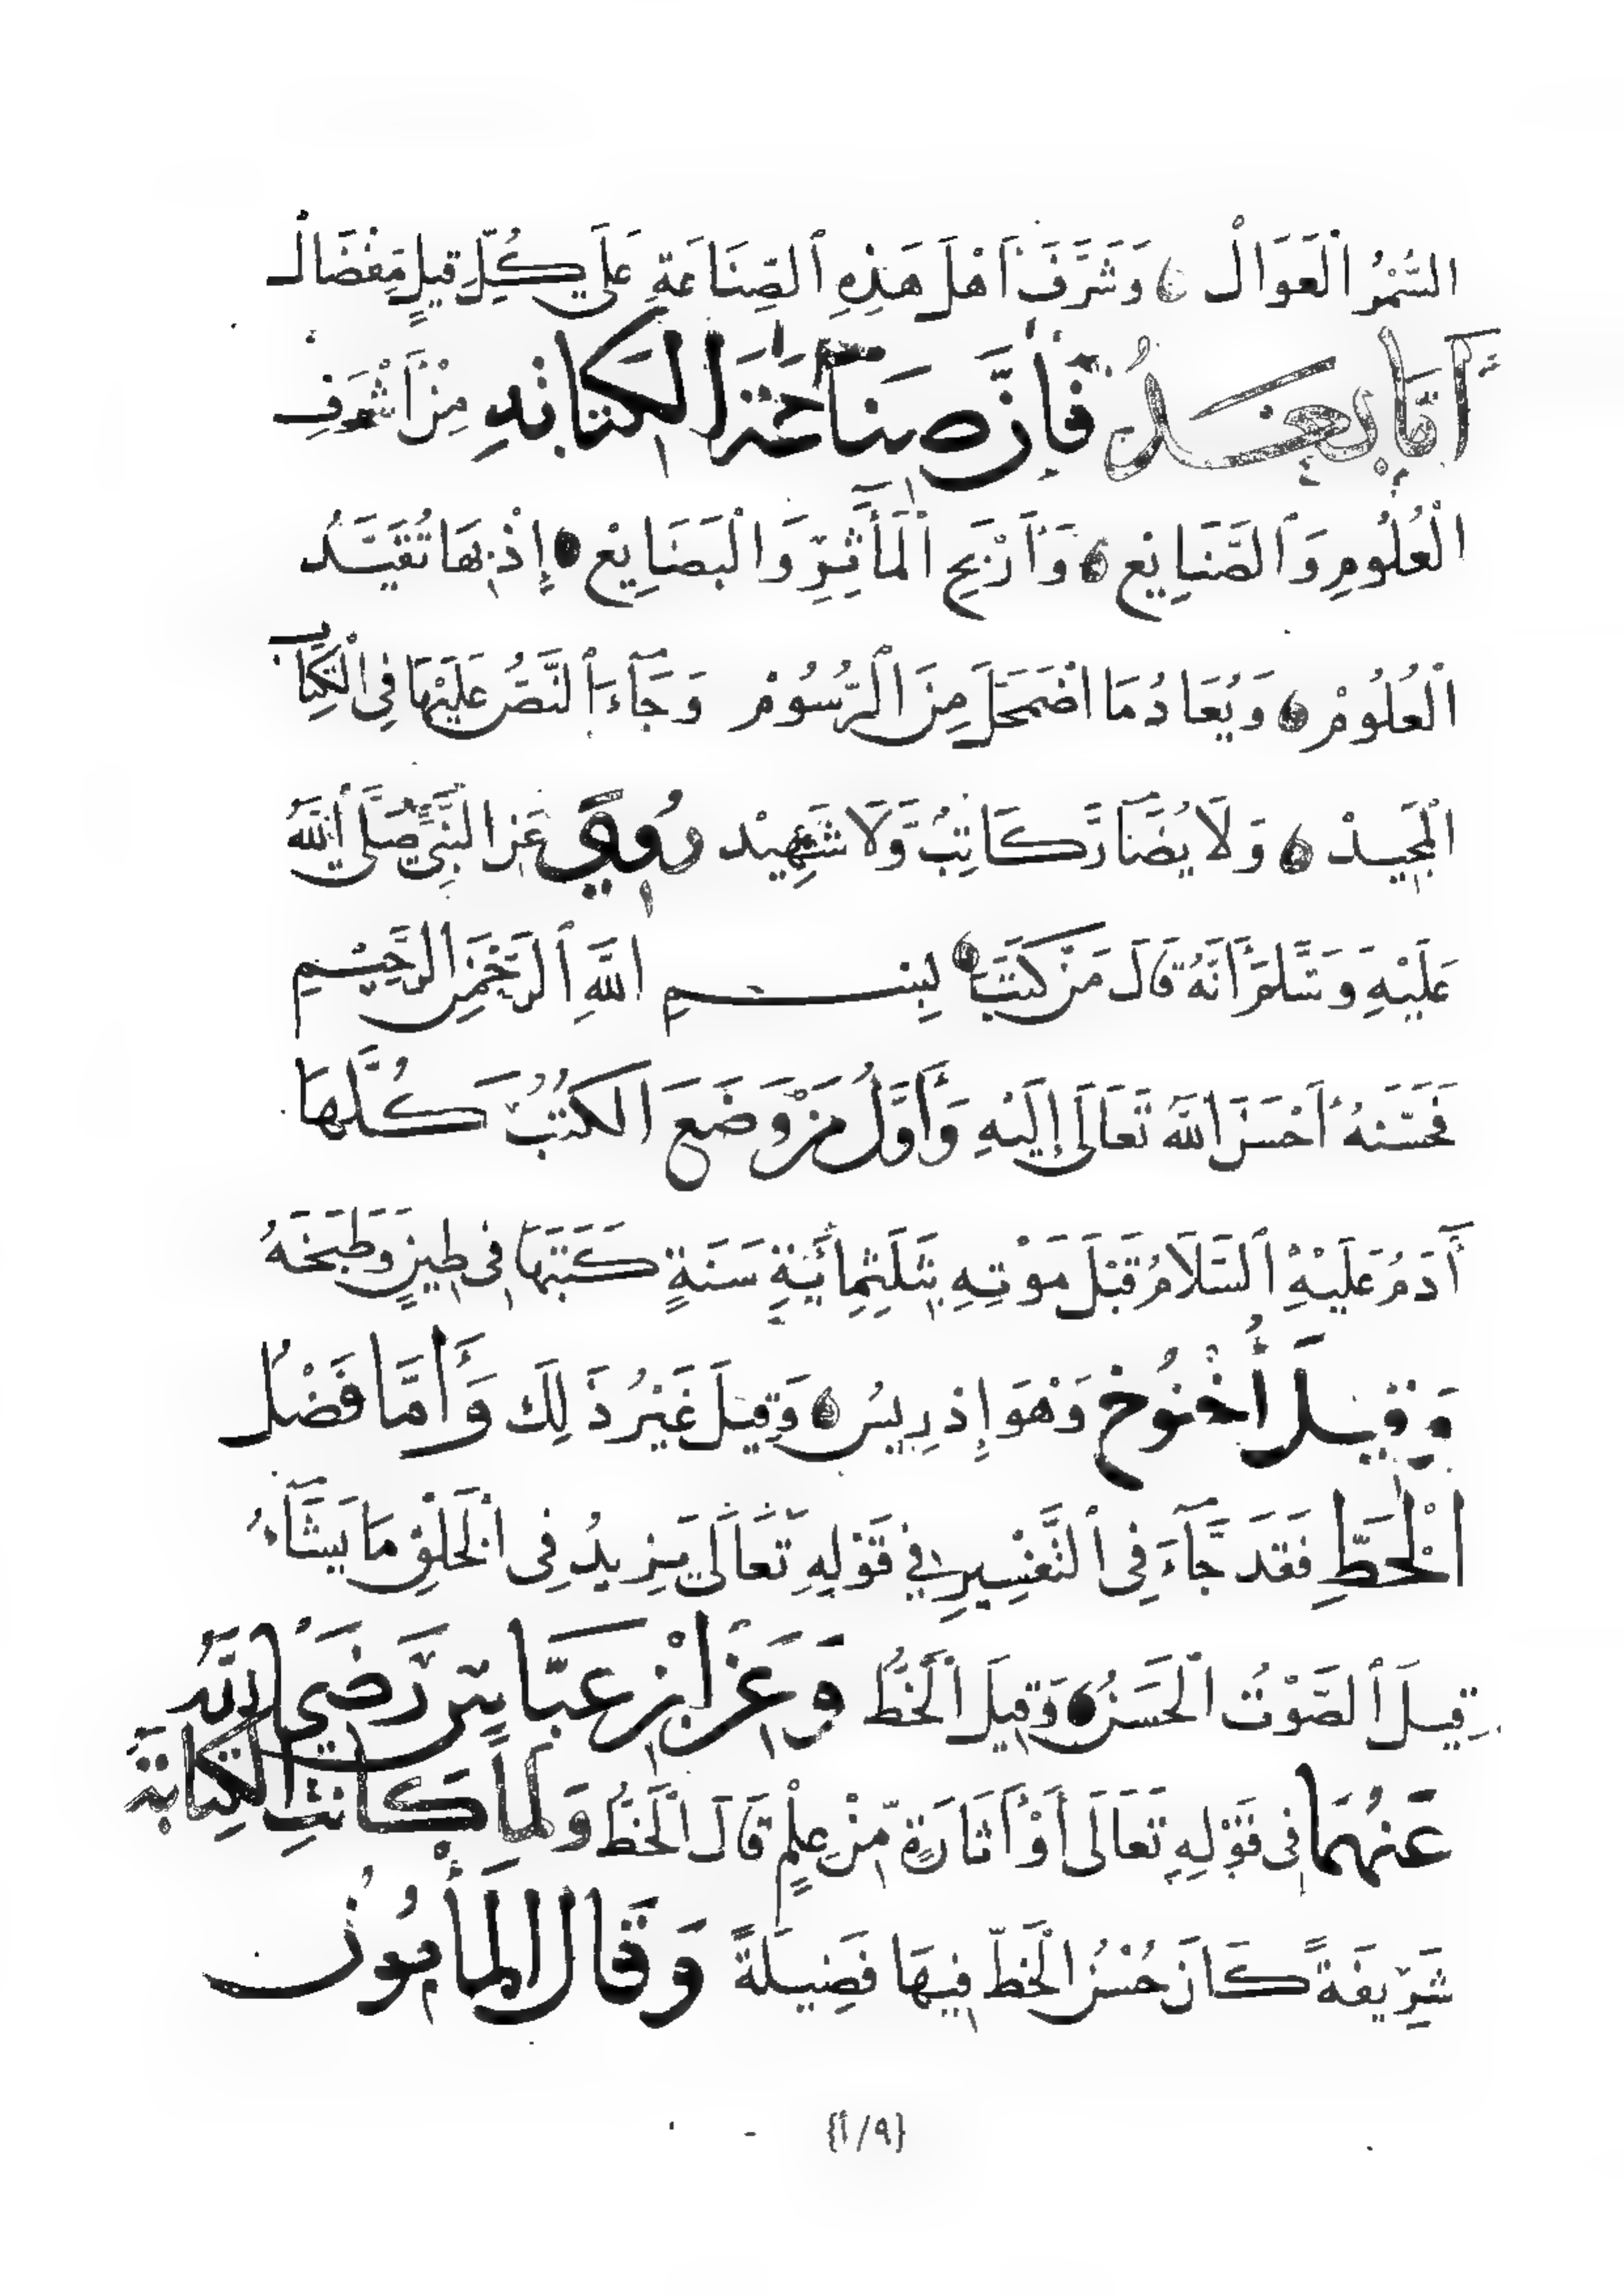 السُّمْرُ الْعَوَالْ وَشَرَّفَ أَهْلَ هَذِهِ ٱلصِّنَاعَةِ عَلَى كُلِّ قَبِيلٍ مِفْضَالْ
أَمَّا بَعْدُ فَإِنَّ صِنَاعَةَ الْكِتَابَةِ مِنْ أَشْرَفِ
الْعُلُومِ وَٱلصَّنَايِعِ وَأَرْبَحِ الْمَأٰثِرِ وَالْبَضَايِعِ إِذْ بِهَا تُقَيَّدُ
الْعُلُومْ وَيُعَادُ مَا اضْمَحَلَّ مِنَ ٱلرُّسُومْ وَجَآءَ ٱلنَّصُّ عَلَيْهَا فِي الْكِتَابِ
الْمَجِيدْ وَلَا يُضَآرَّ كَاتِبٌ وَّلَا شَهِيدْ رُوِيَ عَنِ النَّبِيِّ صَلَّى ٱللَّهُ
عَلَيْهِ وَسَلَّمَ أَنَّهُ قَالَ مَنْ كَتَبَ بِسْمِ اللَّهِ ٱلرَّحْمَنِ الرَّحِيمِ
فَحَسَّنَهُ أَحْسَنَ اللَّهُ تَعَالَى إِلَيْهِ وَأَوَّلُ مَنْ وَضَعَ الْكُتُبَ كُلَّهَا
آدَمُ عَلَيْهِ ٱلسَّلَامُ قَبْلَ مَوْتِهِ بِثَلَثِمِائَةِ سَنَةٍ كَتَبَهَا فِي طِينٍ وَطَبَخَهُ
وَقِيلَ أُخْنُوخ وَهْوَ إِدْرِيسُ وَقِيلَ غَيْرُ ذَلِكَ وَأَمَّا فَضْلُ
الْخَطِّ فَقَدْ جَآءَ فِي ٱلتَّفْسِيرِ فِي قَوْلِهِ تَعَالَى يَزِيدُ فِي الْخَلْقِ مَا يَشَآءُ
قِيلَ ٱلصَّوْتُ الْحَسَنُ وَقِيلَ الْخَطُّ وَعَنِ ابْنِ عَبَّاسٍ رَضِيَ اللَّهُ
عَنْهُمَا فِي قَوْلِهِ تَعَالَى أَوْ أَثَارَةٍ مِّنْ عِلْمٍ قَالَ الْخَطُّ وَلَمَّا كَانَتِ الْكِتَابَةُ
شَرِيفَةً كَانَ حُسْنُ الْخَطِّ فِيهَا فَضِيلَةً وَقَالَ الْمَأْمُونُ
{٩/أ}